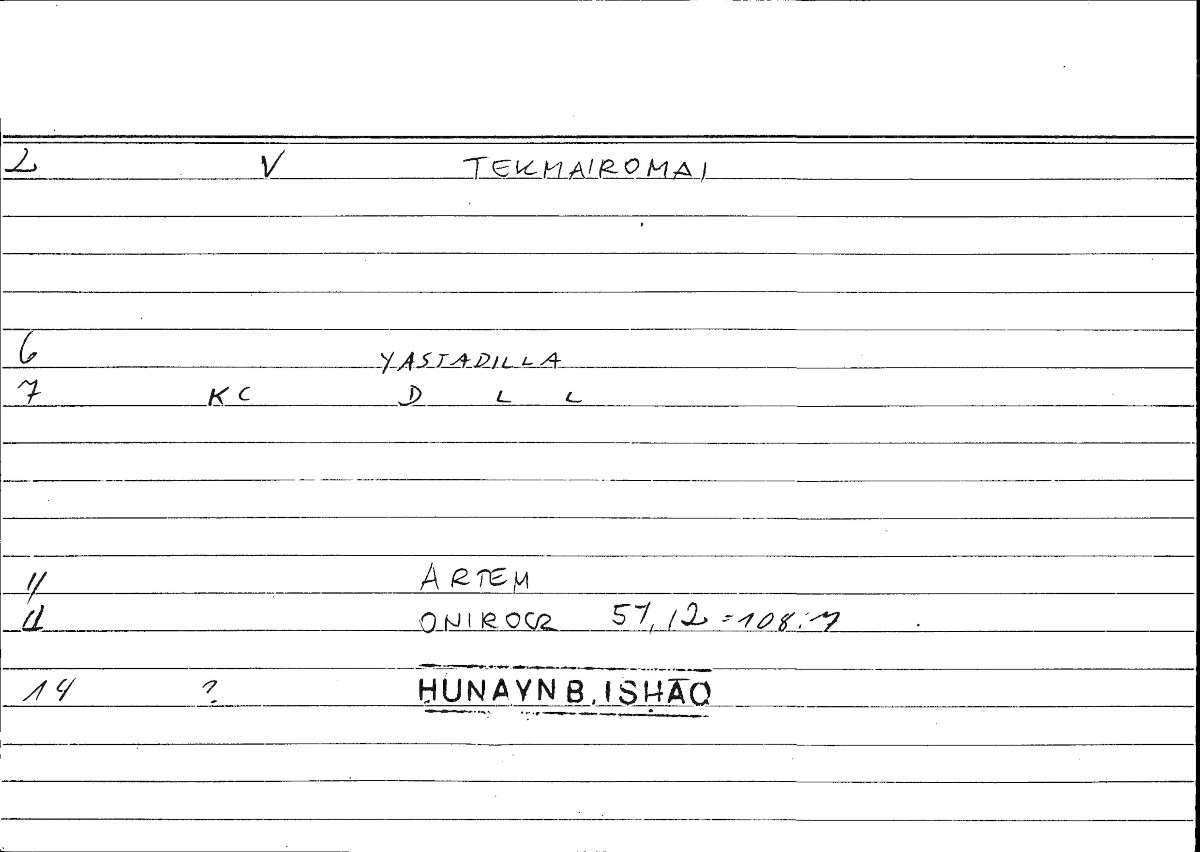 2 V TEKMAIROMAI
6 YASTADILLA
7 KC D L L
11 ARTEM
12 ONIROCR 57,12 = 108:7
14 ? HUNAYN B. ISḤĀQ